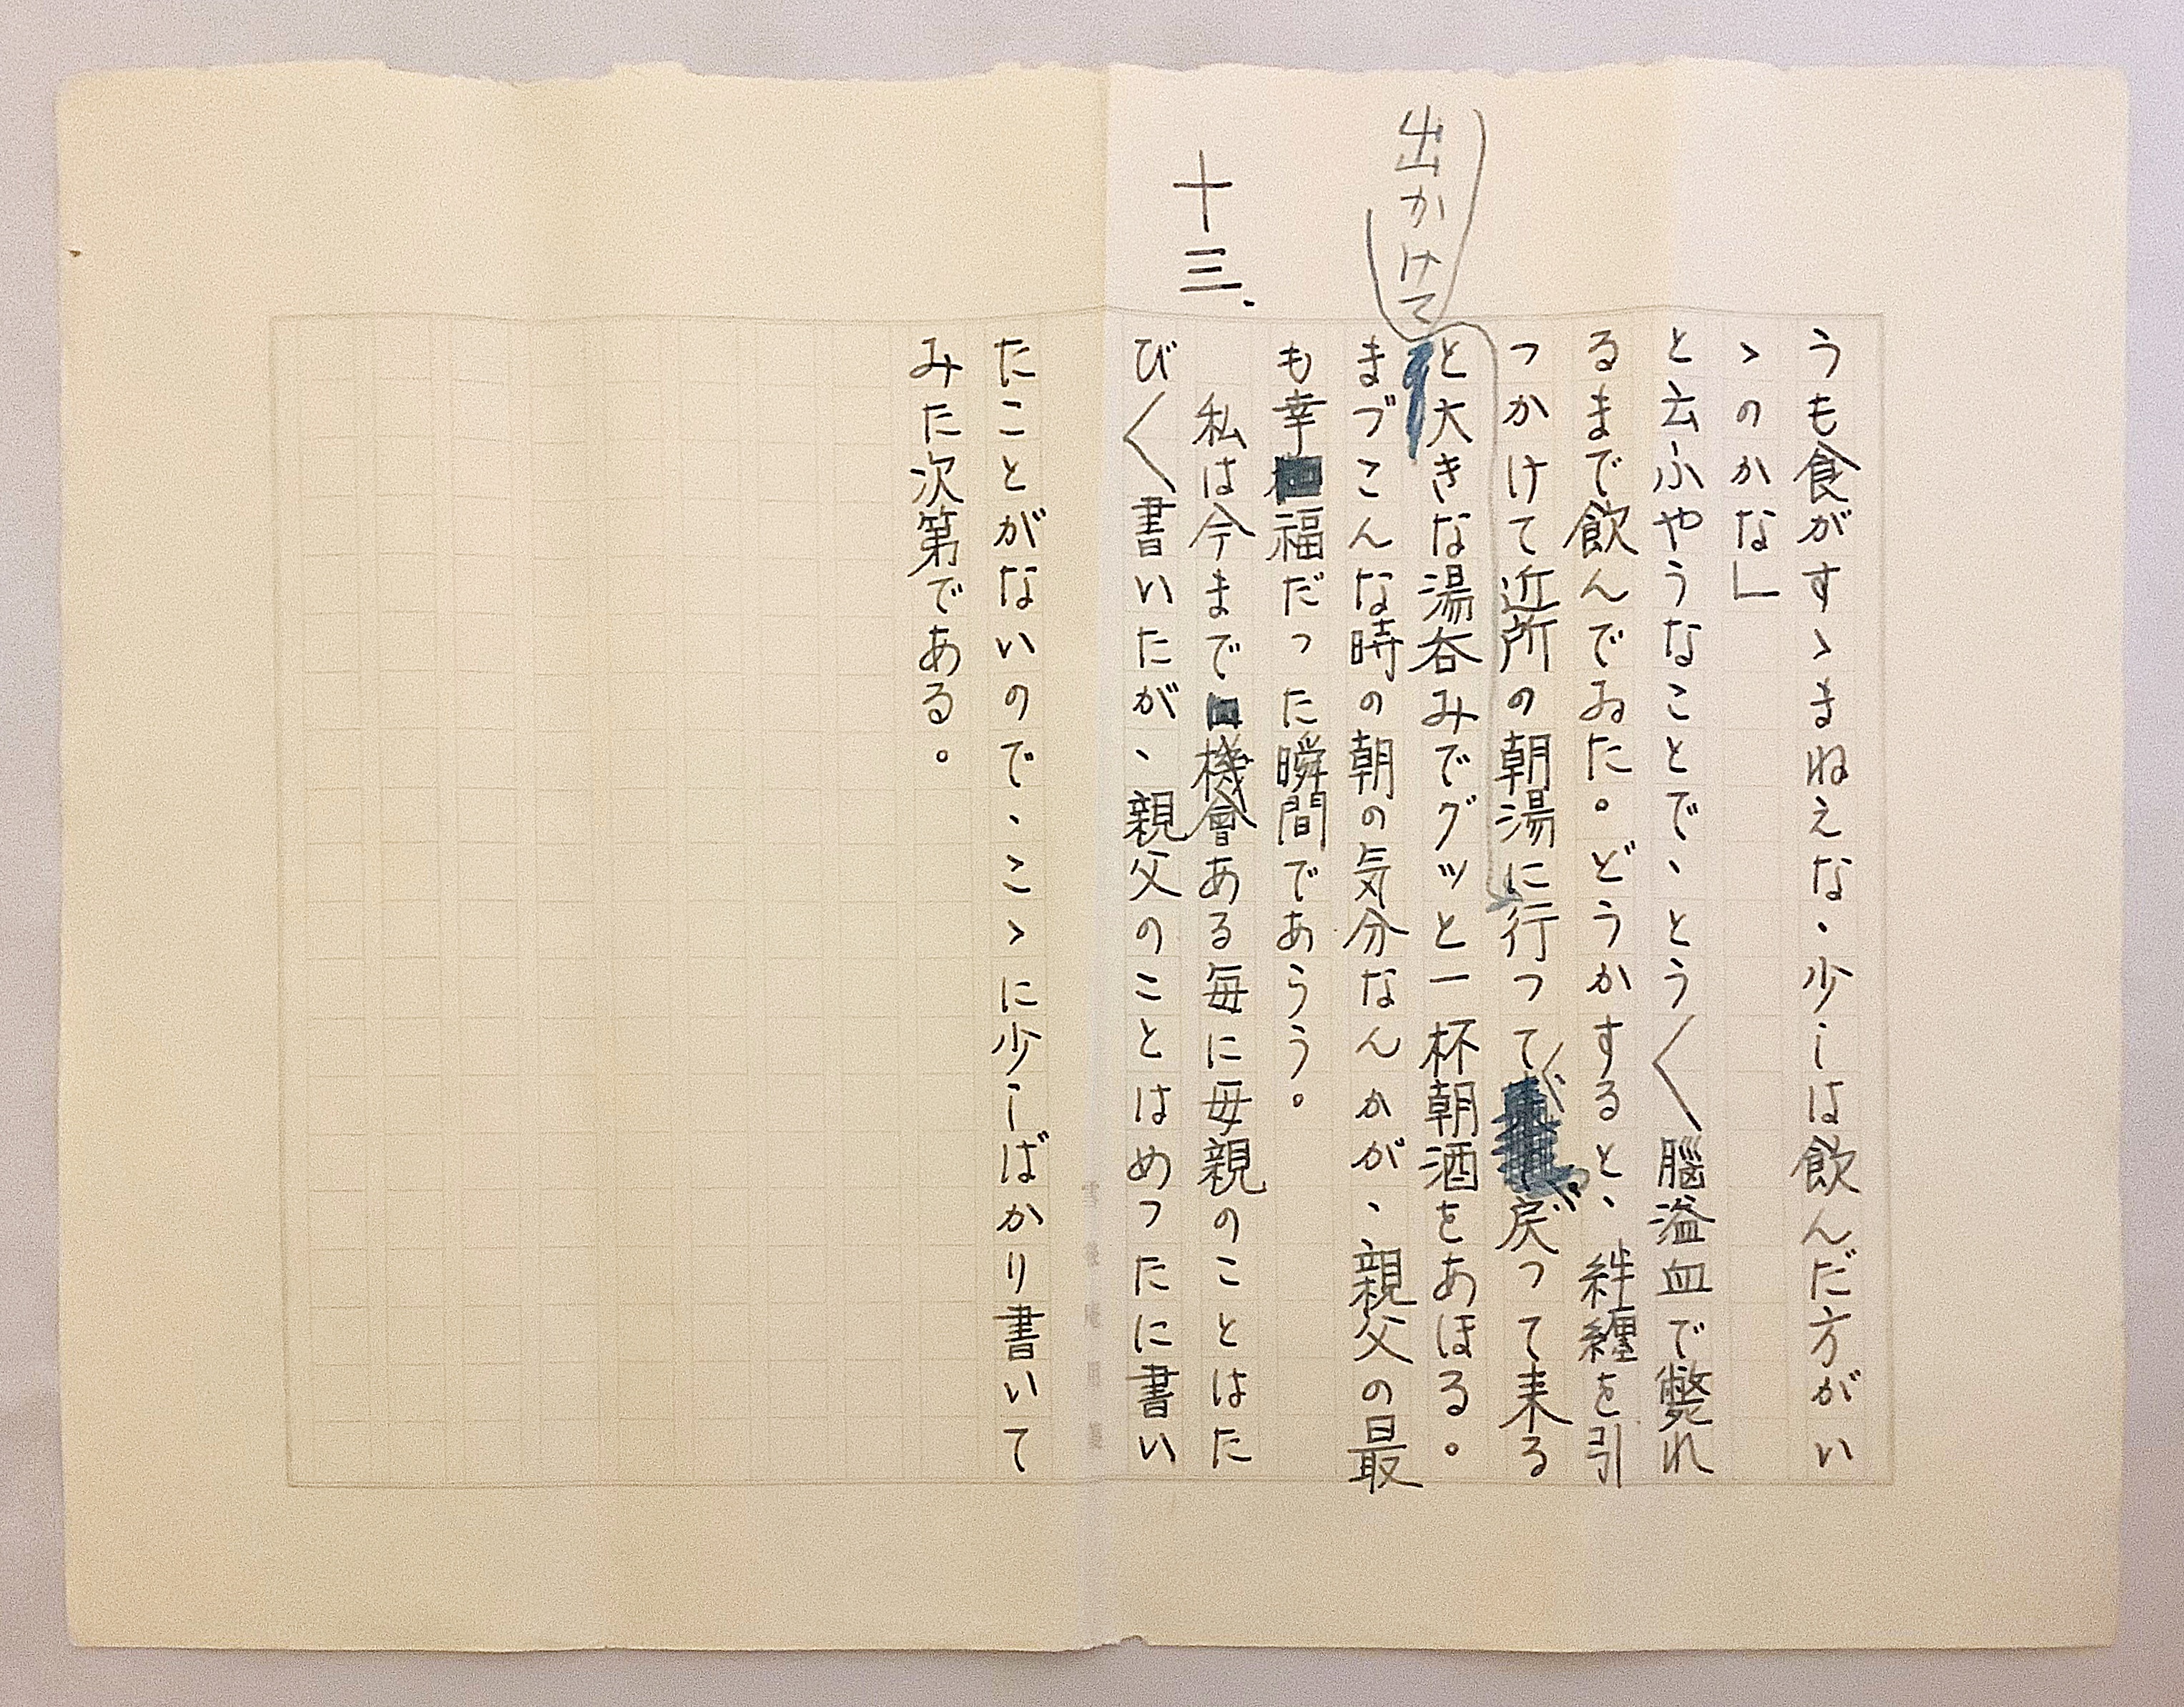 うも食がすゝまねえな・少しは飲んだ方がい
ゝのかな」
と云ふやうなことで、とう〱脳溢血で斃れ
るまで飲んでゐた。どうかすると、絆纏を引
つかけて近所の朝湯に行って戻って来る
出かけて
と大きな湯呑みでグッと一杯朝酒をあほる。
まづこんな時の朝の気分なんかが、親父の最
も幸福だった瞬間であらう。
十三.
私は今まで機會ある毎に母親のことはた
び〱書いたが、親父のことはめったに書い
たことがないので、こゝに少しばかり書いて
みた次第である。